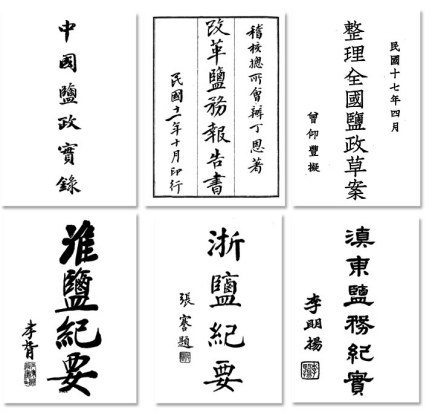 中國鹽政實錄
稽核總所會辦丁恩著
改革鹽務報告書
民國十一年十月印行
民國十七年四月
整理全國鹽政草案
曾仰豐擬
淮鹽紀要
浙鹽紀要
張謇題
滇東鹽務紀實
李明揚